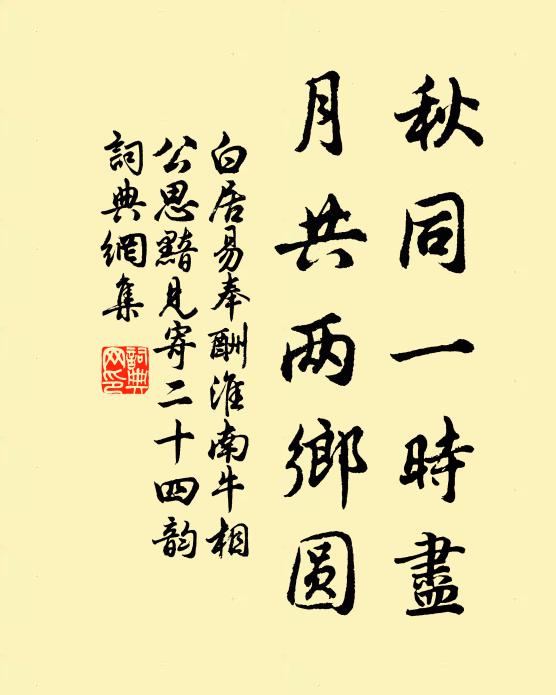 秋同一時盡
月共两鄉圆
白居易奉酬淮南牛相
公思黯見寄二十四韵
詞典網集
詞典網印